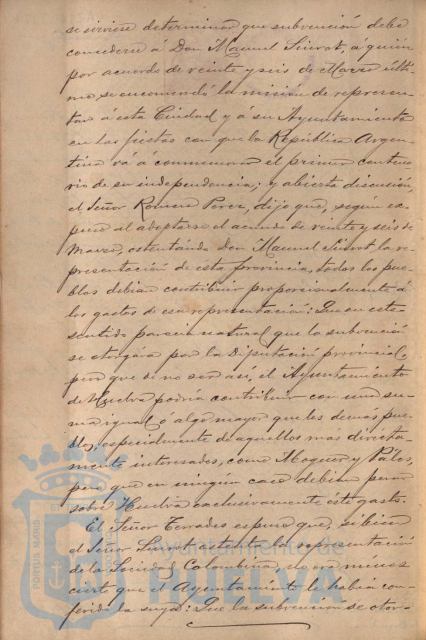 se sirviese determinar que subvención debe
concederse á Don Manuel Siurot, á quien
por acuerdo de veinte y seis de Marzo últi-
mo, se encomendó la misión de represen-
tar á esta Ciudad y á su Ayuntamiento
en las fiestas con que la República Argen-
tina vá a conmemorar el primer centena-
rio de su independencia; y abierta discusión,
el Señor Romero Perez, dijo que, según ex-
puso al adoptarse el acuerdo de veinte y seis de
Marzo, ostentando Don Manuel Siurot la re-
presentación de esta provincia, todos los pue-
blos debian contribuir proporcionalmente á
los gastos de esa representación: Que en este
sentido parecia natural que la subvención
se otorgara por la Diputación provincial,
pero que de no ser así, el Ayuntamiento
de Huelva podria contribuir con una su-
ma igual ó algo mayor que los demás pue-
blos, especialmente de aquellos más directa-
mente interesados, como Moguer y Palos,
pero que en ningun caso debian pesar
sobre Huelva exclusivamente este gasto.
El Señor Terrades expuso que, si bien
el Señor Siurot ostenta la representación
de la Sociedad Colombina, no era menos
cierto que el Ayuntamiento le habia con-
ferido la suya: Que la subvención se otor-
PORTUS MARIS
Ayuntamiento de
HUELVA